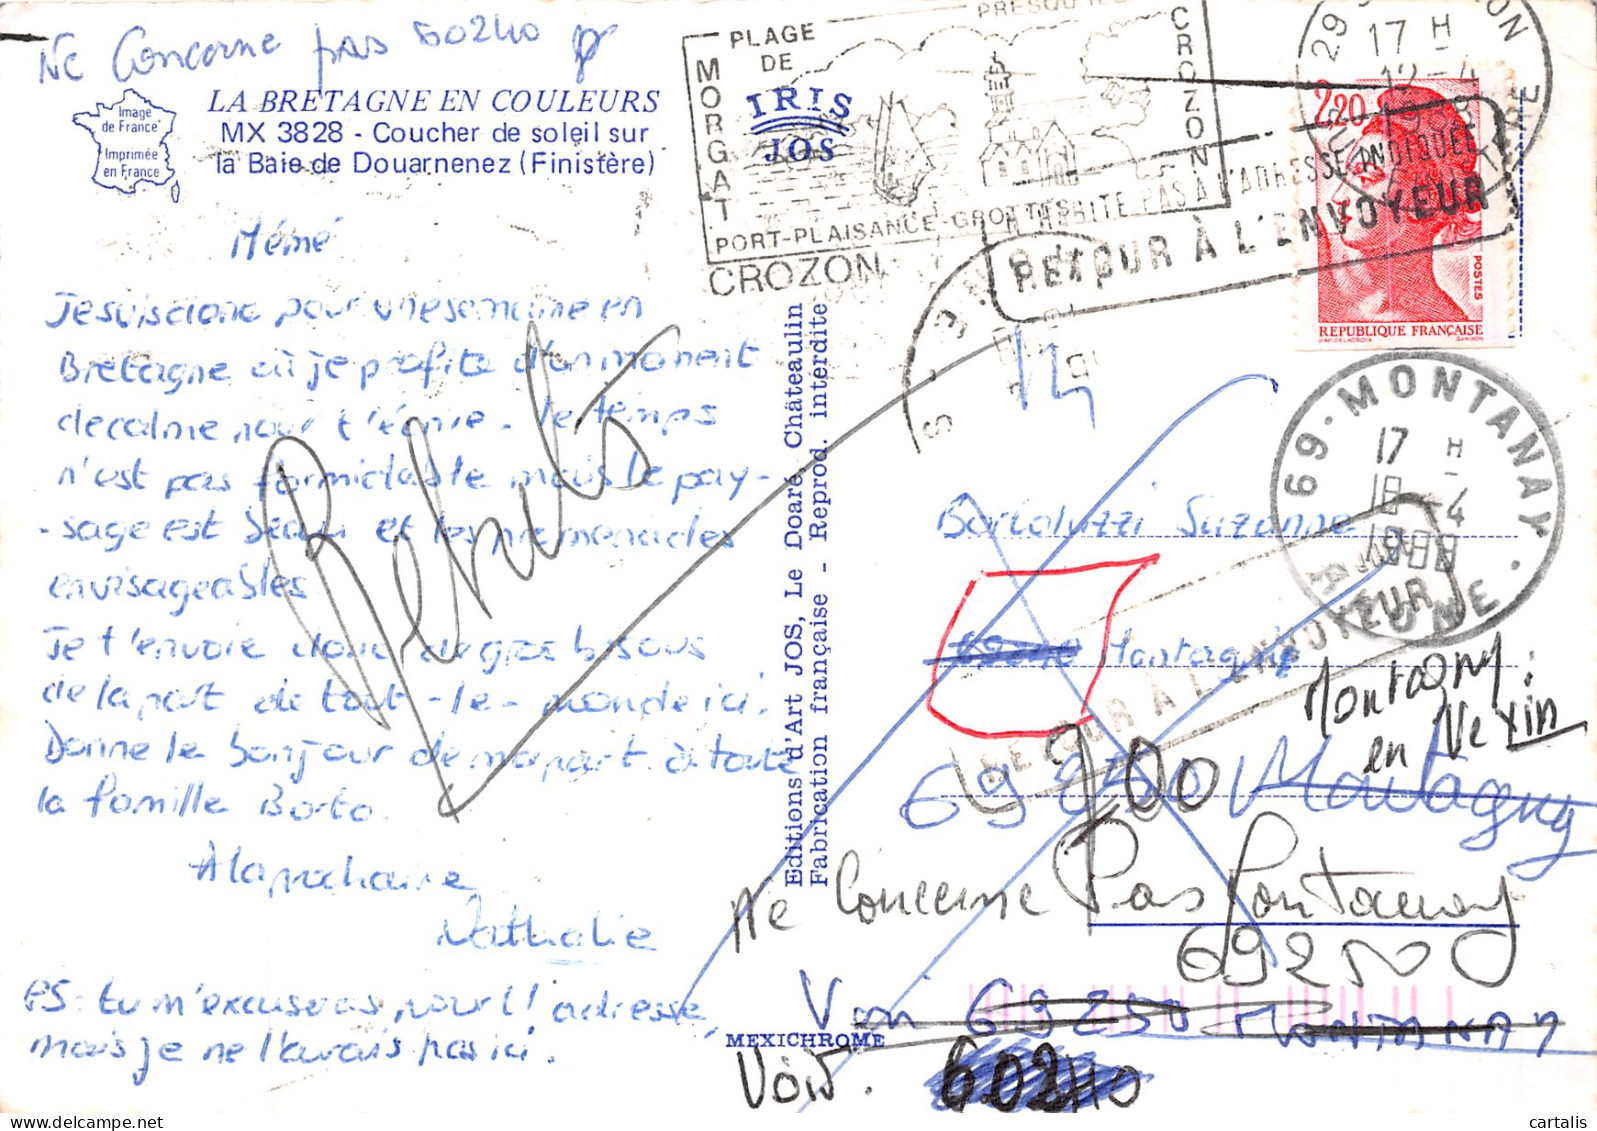 Ne Concerne pas 60240
Image
de France
Imprimée
en France
LA BRETAGNE EN COULEURS
MX 3828 - Coucher de soleil sur
la Baie de Douarnenez (Finistère)
Mémé
Je suis donc pour une semaine en
Bretagne où je profite d'un moment
de calme pour t'écrire. le temps
n'est pas formidable mais le pay-
-sage est beau et les promenades
envisageables
Je t'envoie donc de gros bisous
de la part de tout-le-monde ici.
Donne le bonjour de ma part à toute
la famille Borto.
A la prochaine
Nathalie
PS: tu m'excuseras pour l'adresse,
mais je ne l'avais pas ici.
Rebuts
PLAGE
DE
MORGAT
PRESQU'ILE
CROZON
IRIS
JOS
PORT-PLAISANCE-GROTTES
CROZON
29 CROZON
17 H
12-4
1988
FINISTERE
2,20
POSTES
REPUBLIQUE FRANÇAISE
D'AP. DELACROIX GANDON
N'HABITE PAS A L'ADRESSE INDIQUEE
RETOUR À L'ENVOYEUR
Editions d'Art JOS, Le Doaré, Châteaulin
Fabrication française - Reprod. interdite
MEXICHROME
69-MONTANAY
17 H
18-4
1988
RHONE
Bortoluzzi Suzanne
Montagnie
RETOUR A L'ENVOYEUR
Montagny
en Vexin
69250 Montagny
Ne Concerne Pas Montanay
69250
Voir 69250 MONTANAY
Voir. 60240
cartalis